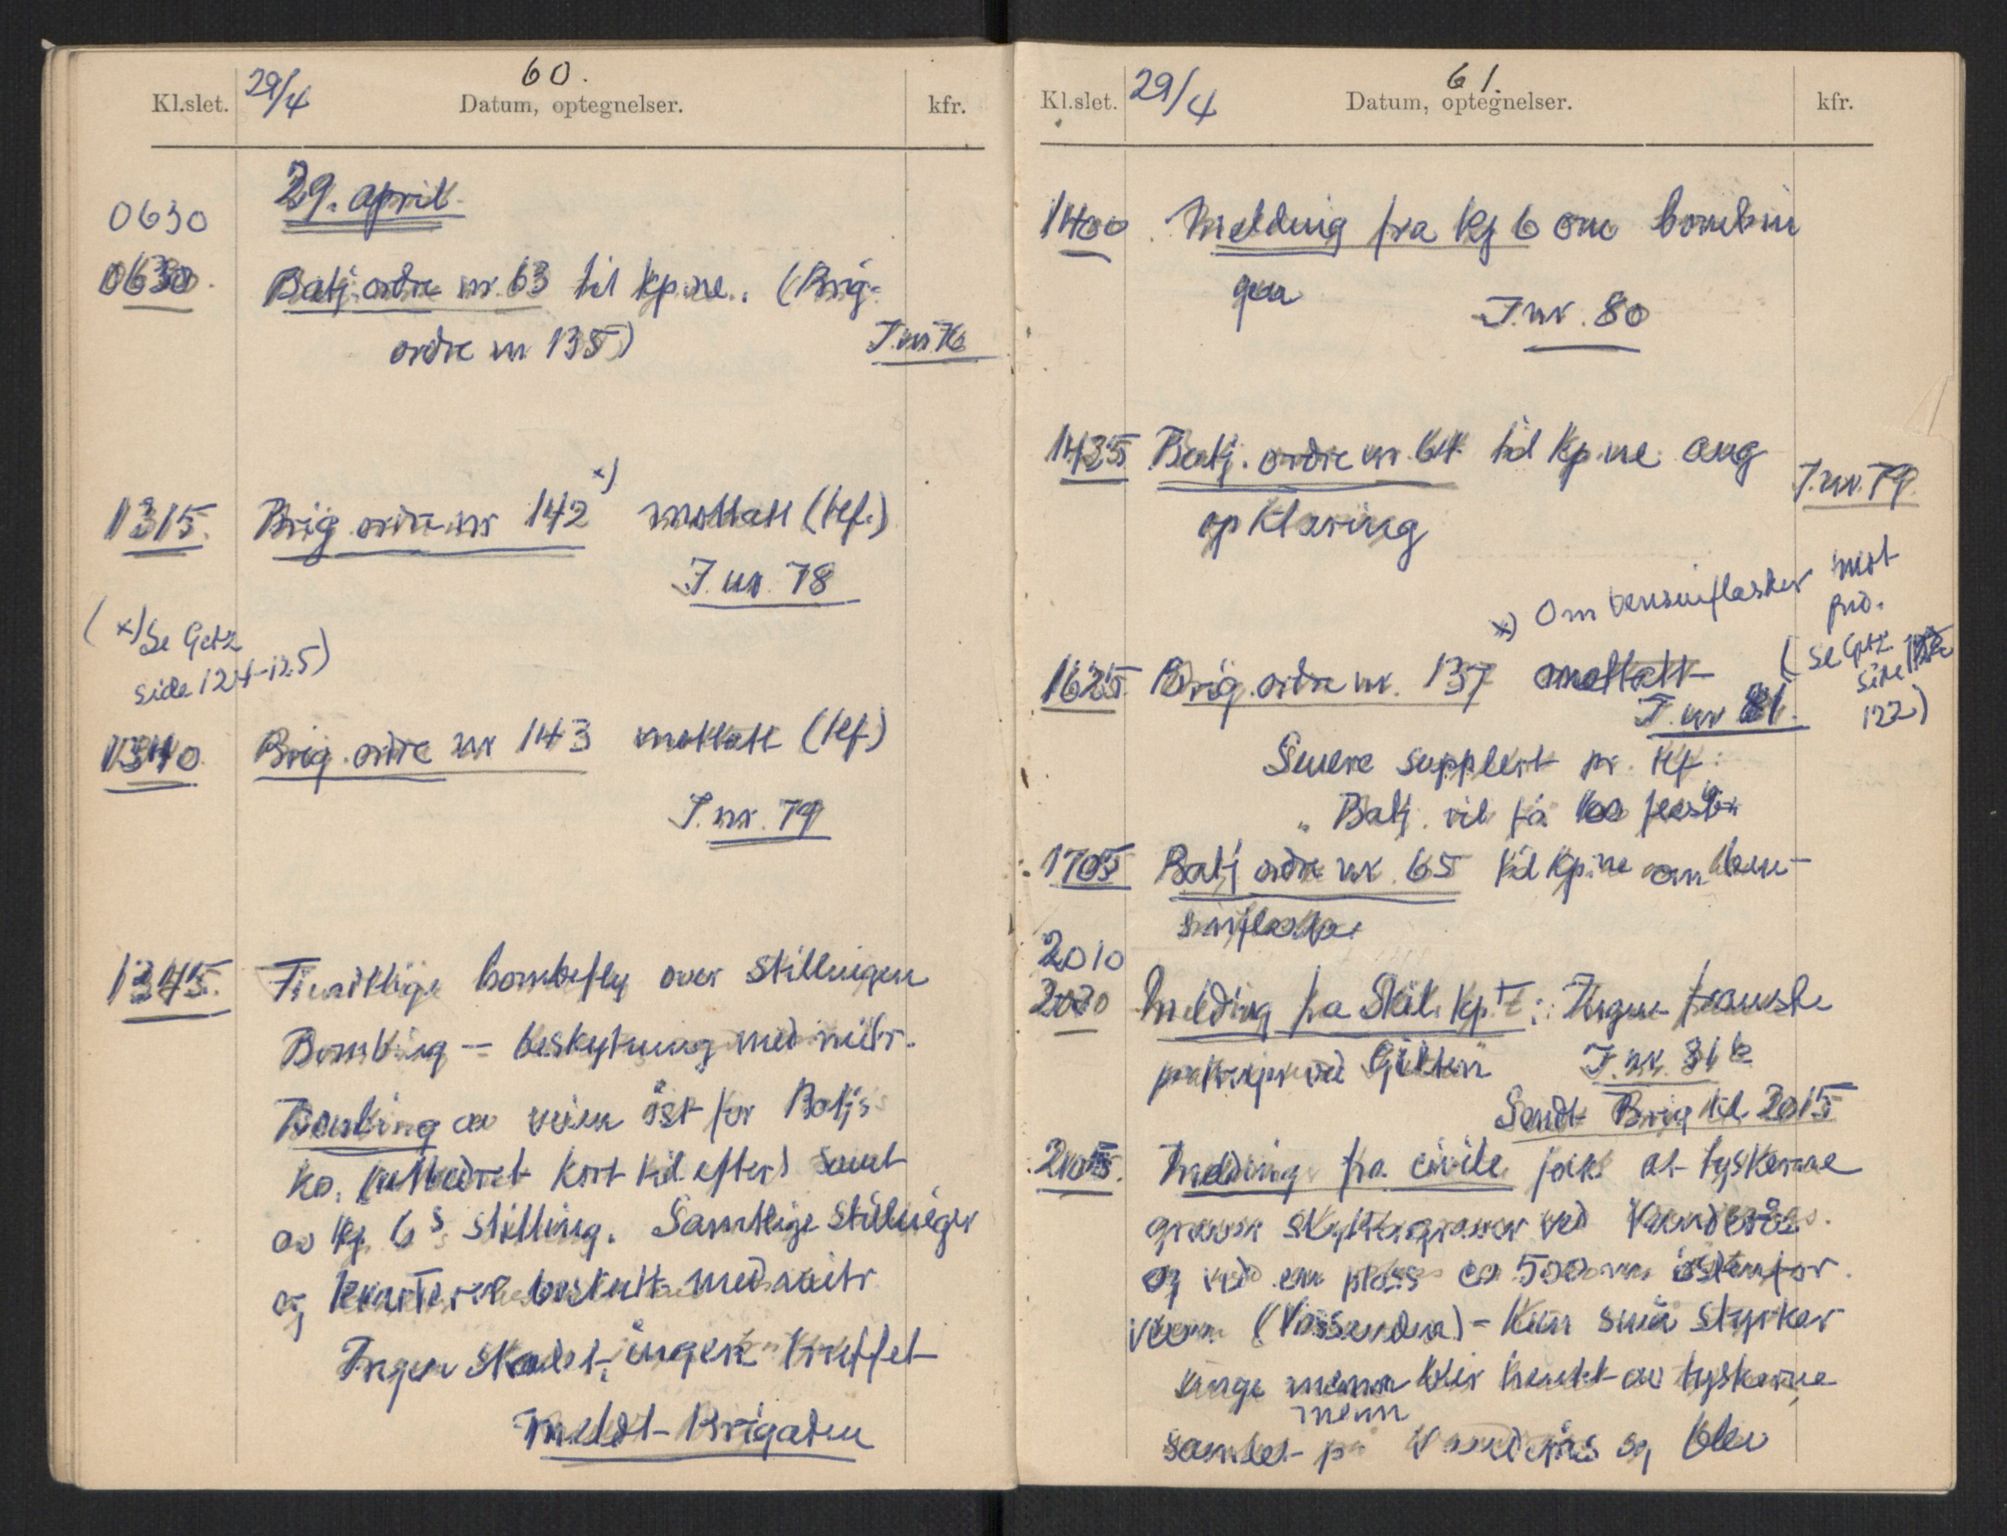 60.
Kl.slet. 29/4 Datum, optegnelser. kfr.
0630 29. april.
0630. Batj. ordre nr. 63 til kp.ne. (Brig-
ordre nr 135) J.nr 76
1315. Brig. ordre nr 142 x) mottatt (tlf.)
J. nr. 78
( x) Se Getz
side 124-125)
1340. Brig. ordre nr 143 mottatt (tlf.)
J. nr. 79
1345. Fiendtlige bombefly over stillingen
Bombing — beskytning med mitr.
Bombing av veien øst for Batj s
ko. kort tid efter) samt
av kp. 6s stilling. Samtlige stillinger
og kvarterer beskutt med mitr
Ingen skadet, ingen truffet
Meldt Brigaden
61.
Kl.slet. 29/4 Datum, optegnelser. kfr.
1400. Melding fra Kp 6 om bombin
gen
J. nr. 80
1435 Batj. ordre nr. 64 til Kp.ne ang
opklaring J. nr. 79.
x) Om bensinflasker mot
1625. Brig. ordre nr. 137 mottatt (Se Getz
side
J. nr 81. 122)
Senere supplert pr. tlf:
" Batj. vil få 100 flasker
1705 Batj ordre nr. 65 til Kp.ne om ben-
sinflasker
2010
2030 Melding fra Skil. kp.: Ingen franske
ved J. nr. 81 b
Sendt Brig kl. 2015
2105. Melding fra civile folk at tyskerne
graver skyttergraver ved
og ved en plass ca 500 m østenfor
veien - Kun små styrker
unge menn blir hentet av tyskerne
menn
samlet på og blev